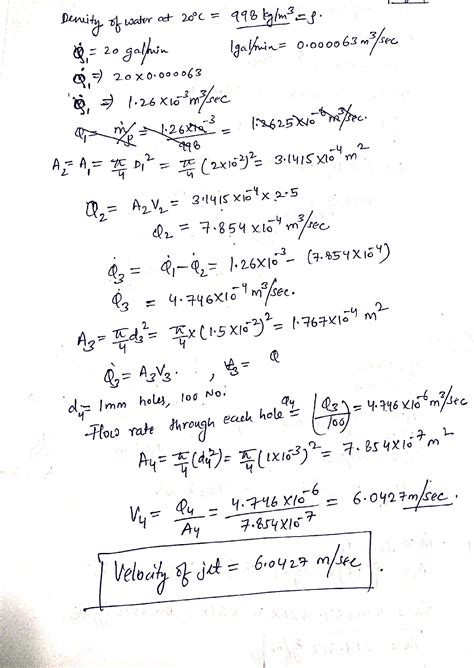 Density of water at 20°C = 998 kg/m³ = ρ.
Q̇₁ = 20 gal/min 1gal/min = 0.000063 m³/sec
Q̇₁ ⇒ 20 x 0.000063
Q̇₁ ⇒ 1.26 x 10⁻³ m³/sec
Q₁ = ṁ/ρ = 1.26x10⁻³/998 = 1.2625x10⁻⁶ m³/sec.
A₂ = A₁ = π/4 D₁² = π/4 (2x10⁻²)² = 3.1415 x10⁻⁴ m²
Q₂ = A₂V₂ = 3.1415 x10⁻⁴ x 2.5
Q₂ = 7.854 x10⁻⁴ m³/sec
Q̇₃ = Q̇₁ - Q̇₂ = 1.26x10⁻³ - (7.854 x10⁻⁴)
Q̇₃ = 4.746x10⁻⁴ m³/sec.
A₃ = π/4 d₃² = π/4 x (1.5 x10⁻²)² = 1.767x10⁻⁴ m²
Q̇₃ = A₃V₃. , V₃ = Q
d₄ = 1mm holes, 100 No.
Flow rate through each hole q₄ = (Q₃/100) = 4.746 x10⁻⁶ m³/sec
A₄ = π/4 (d₄²) = π/4 (1x10⁻³)² = 7.854 x10⁻⁷ m²
V₄ = Q₄/A₄ = 4.746 x10⁻⁶/7.854x10⁻⁷ = 6.0427 m/sec.
Velocity of jet = 6.0427 m/sec.